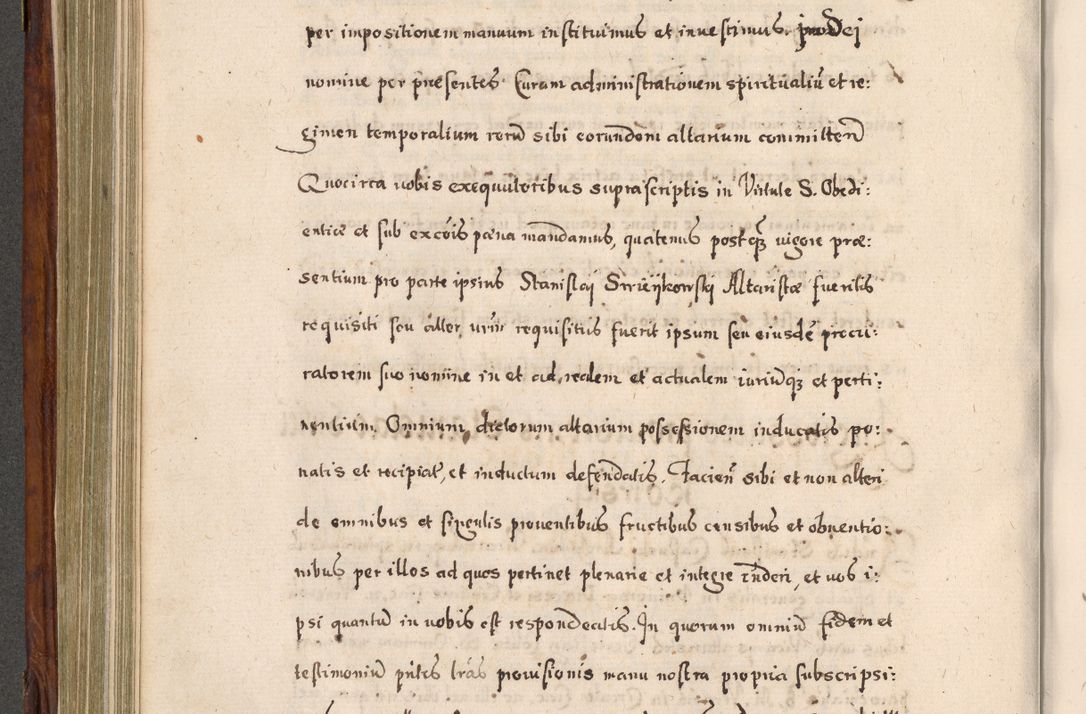 per impositionem manuum instituimus et inuestimus. Dei
nomine per præsentes Curam administrationem spiritualiũ et re:
gimen temporalium rerũ sibi eorundem altarium committeñ
Quocirca uobis exequutoribus suprascriptis in Virtute S. Obedi:
entiæ et sub excõis pæna mandamus, quatenus postq̃ vigore præ:
sentium pro parte ipsius Stanislaj Altaristæ fueritis
requisiti seu alter urm̃ requisitus fuerit ipsum seu eiusdẽ procu:
ratorem suo nomine in et ad realem et actualem iuriumq́ʒ et perti:
nentium Omnium, dictorum altarium possessionem inducatis po:
natis et recipiat, et inductum defendatis. Facieñ sibi et non alteri
de omnibus et singulis prouentibus fructibus censibus et obuentio:
nibus per illos ad quos pertinet plenarie et integre r̃nderi, et uos i:
psi quantũ in uobis est respondeatis. In quorum omniũ fidem et
testimoniũ pñtes lr̃as prouisionis manu nostra propria subscripsi: